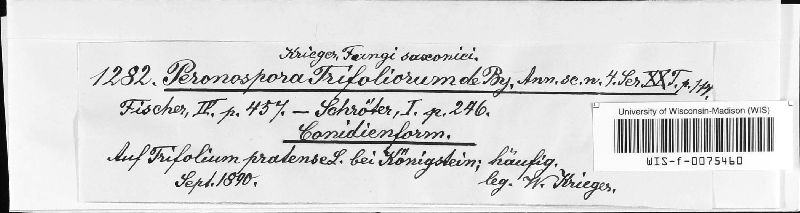 Krieger, Fungi saxonici.
1282. Peronospora Trifoliorum de By. Ann. sc. n. 4. Ser. XX T. p. 117.
Fischer, IV. p. 457. — Schröter, I. p. 246.
Conidienform.
Auf Trifolium pratense L. bei Königstein; häufig.
Sept. 1890. leg. W. Krieger.
University of Wisconsin-Madison (WIS)
WIS-f-0075460